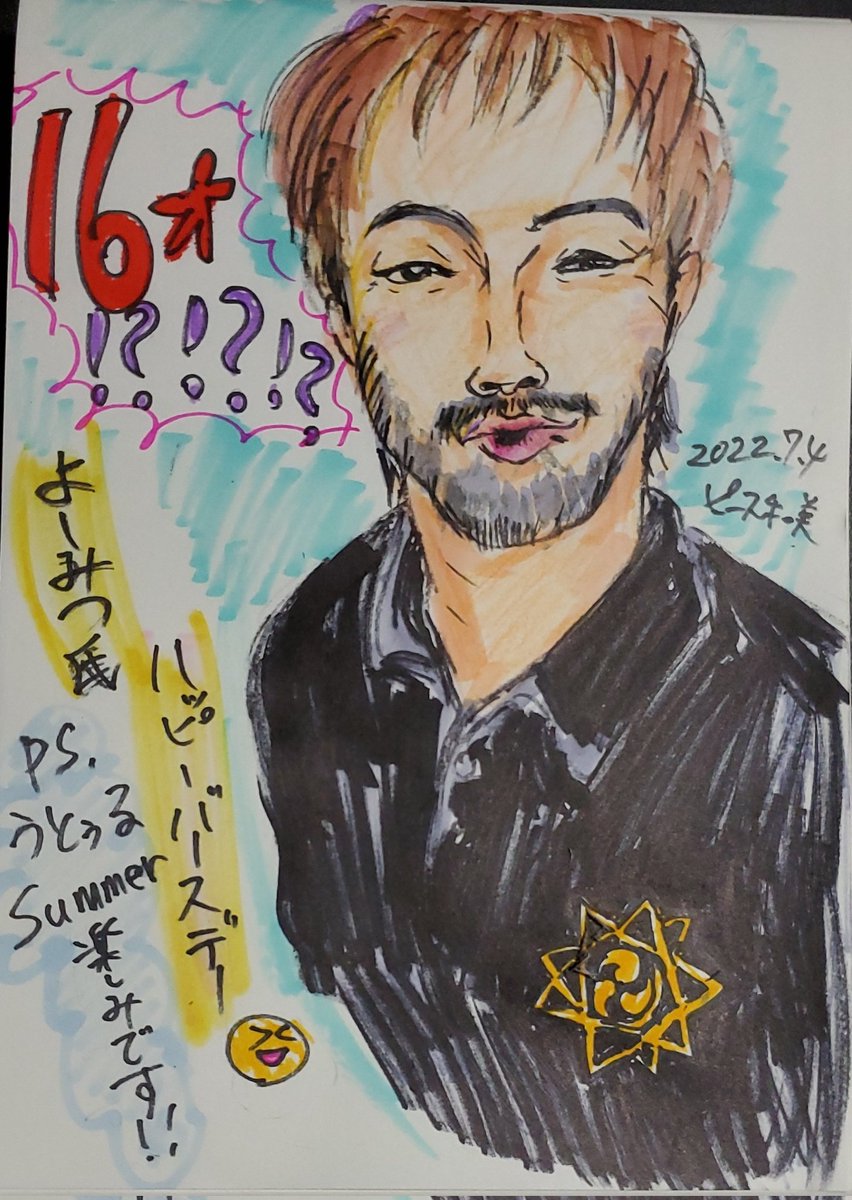 16才
!?!?!?
よしみつ氏
ハッピーバースデー
PS.
うとぅる
Summer
楽しみです!!
2022.7.4